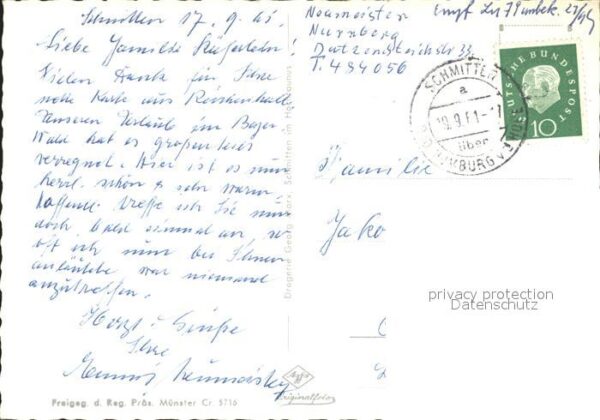 Schmitten 17.9.61.
Liebe Familie
Vielen Dank für Ihre
nette Karte aus Reichenhall
Unseren Urlaub im Bayer.
Wald hat es großenteils
verregnet. Hier ist es nun
herrl. schön & sehr warm
Hoffentl. treffe ich Sie nun
doch bald einmal an, so
oft ich nun bei Ihnen
anläutete war niemand
anzutreffen.
Herzl. Grüße
Ihre
Neumeister
Nürnberg
Dutzendteichstr. 33
T. 484056
Empf.
DEUTSCHE BUNDESPOST
10
SCHMITTEN
a
19.9.61-17
über
HOMBURG v.d. HÖHE
Familie
Jako
privacy protection
Datenschutz
Drogerie Georg Marx, Schmitten im Hochtaunus
Agfa
Originalfoto
Freigeg. d. Reg. Präs. Münster Cr 5716